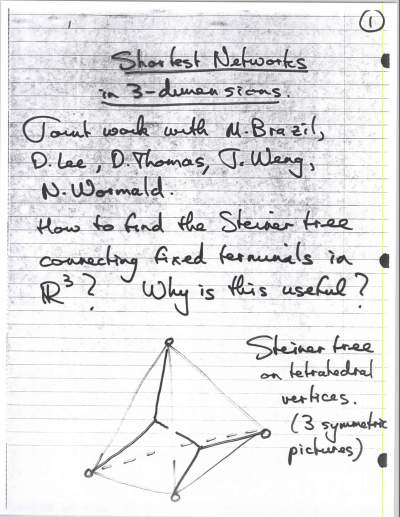 1
Shortest Networks
in 3-dimensions.
Joint work with M. Brazil,
D. Lee, D. Thomas, J. Weng,
N. Wormald.
How to find the Steiner tree
connecting fixed terminals in
ℝ³? Why is this useful?
Steiner tree
on tetrahedral
vertices.
(3 symmetric
pictures)